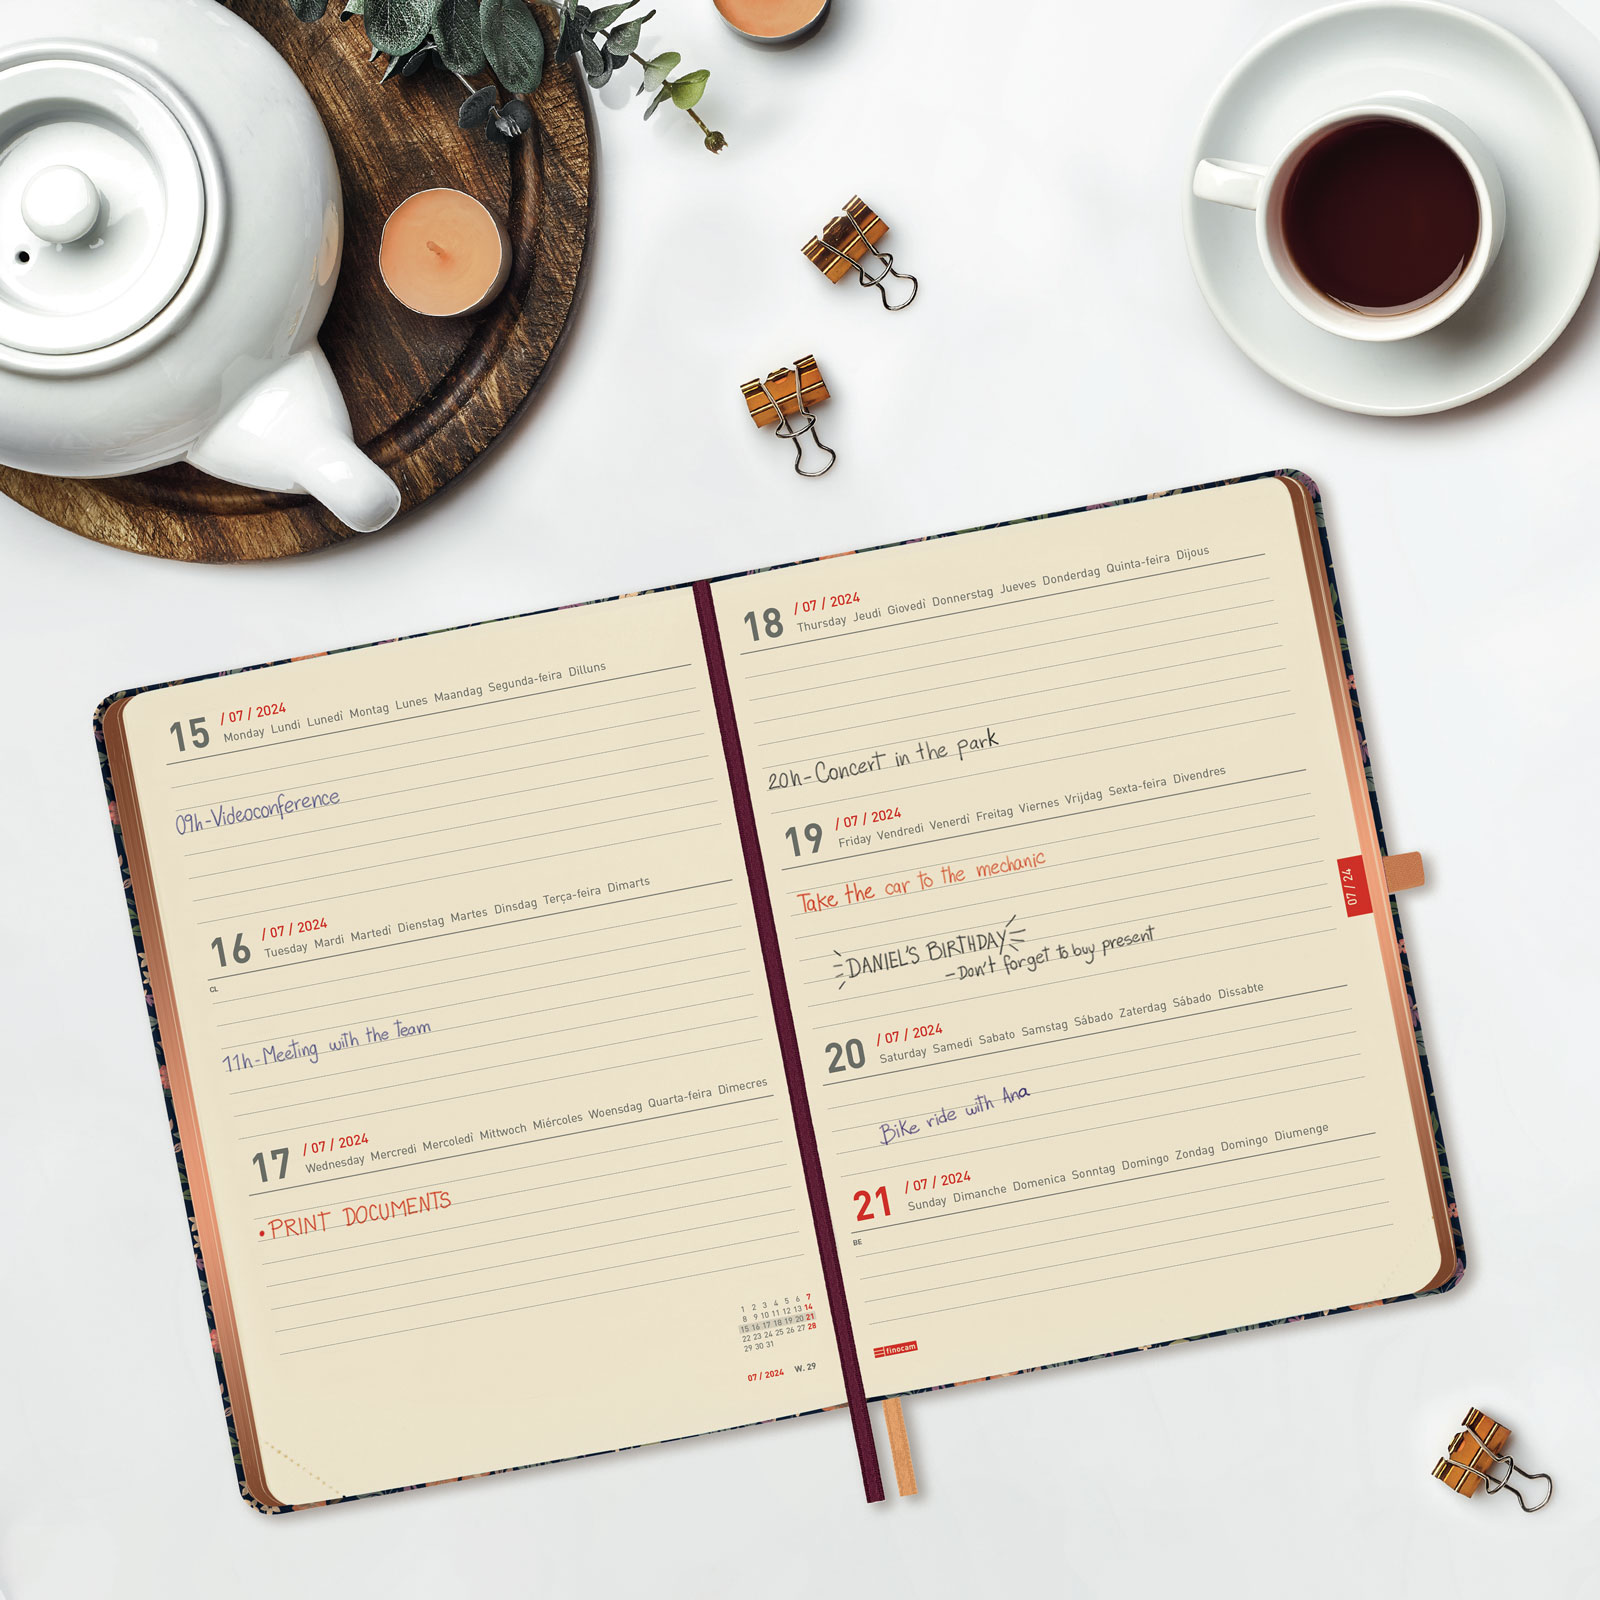 15 / 07 / 2024
Monday Lundi Lunedì Montag Lunes Maandag Segunda-feira Dilluns
09h-Videoconference
16 / 07 / 2024
Tuesday Mardi Martedì Dienstag Martes Dinsdag Terça-feira Dimarts
CL
11h-Meeting with the team
17 / 07 / 2024
Wednesday Mercredi Mercoledì Mittwoch Miércoles Woensdag Quarta-feira Dimecres
•PRINT DOCUMENTS
1 2 3 4 5 6 7
8 9 10 11 12 13 14
15 16 17 18 19 20 21
22 23 24 25 26 27 28
29 30 31
07 / 2024 W. 29
18 / 07 / 2024
Thursday Jeudi Giovedì Donnerstag Jueves Donderdag Quinta-feira Dijous
20h-Concert in the park
19 / 07 / 2024
Friday Vendredi Venerdì Freitag Viernes Vrijdag Sexta-feira Divendres
Take the car to the mechanic
DANIEL'S BIRTHDAY
-Don't forget to buy present
20 / 07 / 2024
Saturday Samedi Sabato Samstag Sábado Zaterdag Sábado Dissabte
Bike ride with Ana
21 / 07 / 2024
Sunday Dimanche Domenica Sonntag Domingo Zondag Domingo Diumenge
BE
finocam
07 / 24